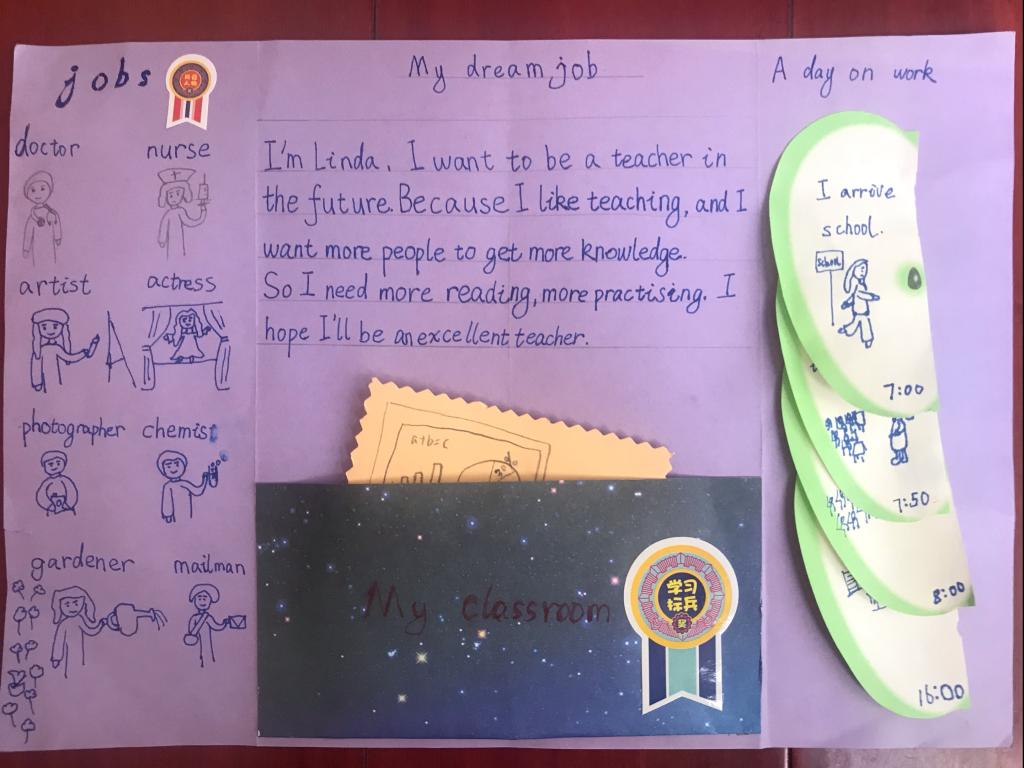 jobs
doctor
nurse
artist
actress
photographer
chemist
gardener
mailman
My dream job
I'm Linda. I want to be a teacher in
the future. Because I like teaching, and I
want more people to get more knowledge.
So I need more reading, more practising. I
hope I'll be an excellent teacher.
a+b=c
My classroom
学习
标兵
奖
A day on work
I arrive
school.
school
7:00
7:50
8:00
16:00